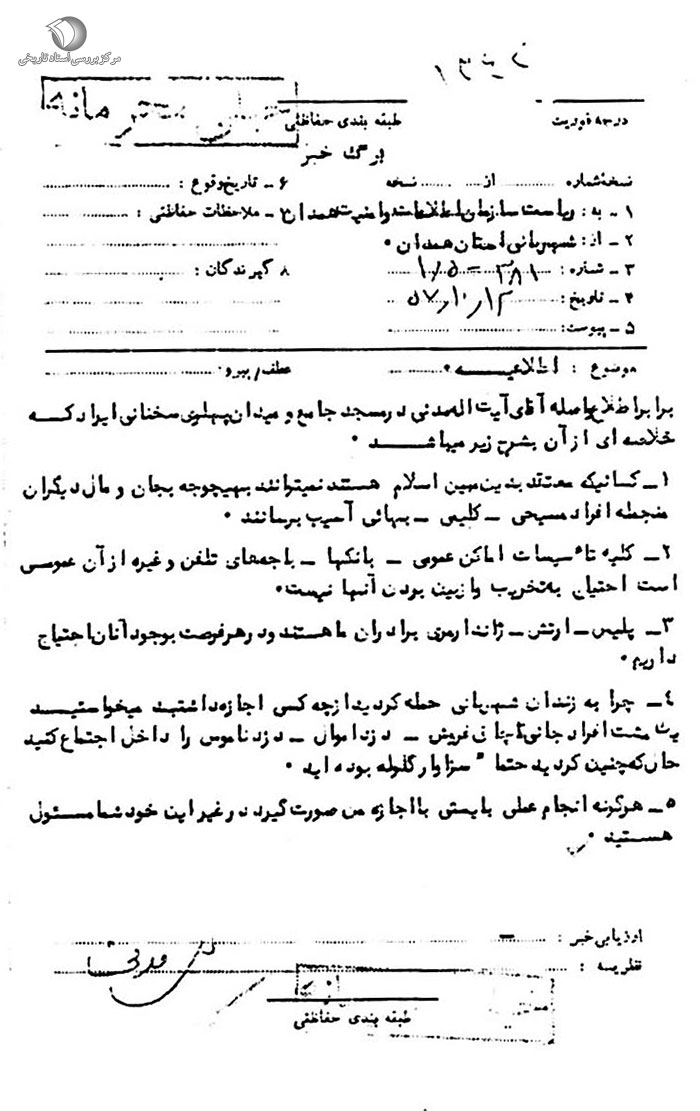 مرکز بررسی اسناد تاریخی
خیلی محرمانه
درجه فوریت
طبقه بندی حفاظتی
برگ خبر
نسخه شماره ........ از ........ نسخه
۶ ـ تاریخ وقوع :
۱ ـ به : ریاست سازمان اطلاعات و امنیت همدان
۷ ـ ملاحظات حفاظتی :
۲ ـ از : شهربانی استان همدان ۰
۳ ـ شماره : ۳۸۱ - ۱/۵
۸ گیرندگان :
۴ ـ تاریخ : ۵۷/۱۰/۱۲
۵ ـ پیوست :
موضوع : اطلاعیـــه ۰
عطف/پیرو ۰
برابر اطلاع واصله آقای آیت اله مدنی در مسجد جامع و میدان پهلوی سخنانی ایراد کـــه
خلاصه ای از آن بشرح زیر میباشـــد ۰
۱ـ کسانیکه معتقد بدین مبین اسلام هستند نمیتوانند بهیچوجه بجان و مال دیگران
منجمله افراد مسیحی ـ کلیمی ـ بهائی آسیب برسانند ۰
۲ـ کلیه تأسیسات اماکن عمومی ـ بانکها ـ باجههای تلفن و غیره از آن عمومـی
است احتیاجی به تخریب و از بین بودن آنها نیست ۰
۳ـ پلیس ـ ارتش ـ ژاندارمری برادران ما هستند و در هر فرصت بوجود آنان احتیاج
داریم ۰
٤ـ چرا به زندان شهربانی حمله کردید از چه کسی اجازه داشتید میخواستیـــد
یک مشت افراد جانی قاچاقی فروش ـ دزد اموال ـ دزد ناموس را داخل اجتماع کنید
حال که چنین کردید حتما" سزاوار گلوله بوده اید ۰
۵ـ هرگونه انجام عملی بایستی با اجازه من صورت گیرد در غیر این خود شما مسئول
هستید ۰
ارزیابی خبر :
نظریه :
طبقه بندی حفاظتی